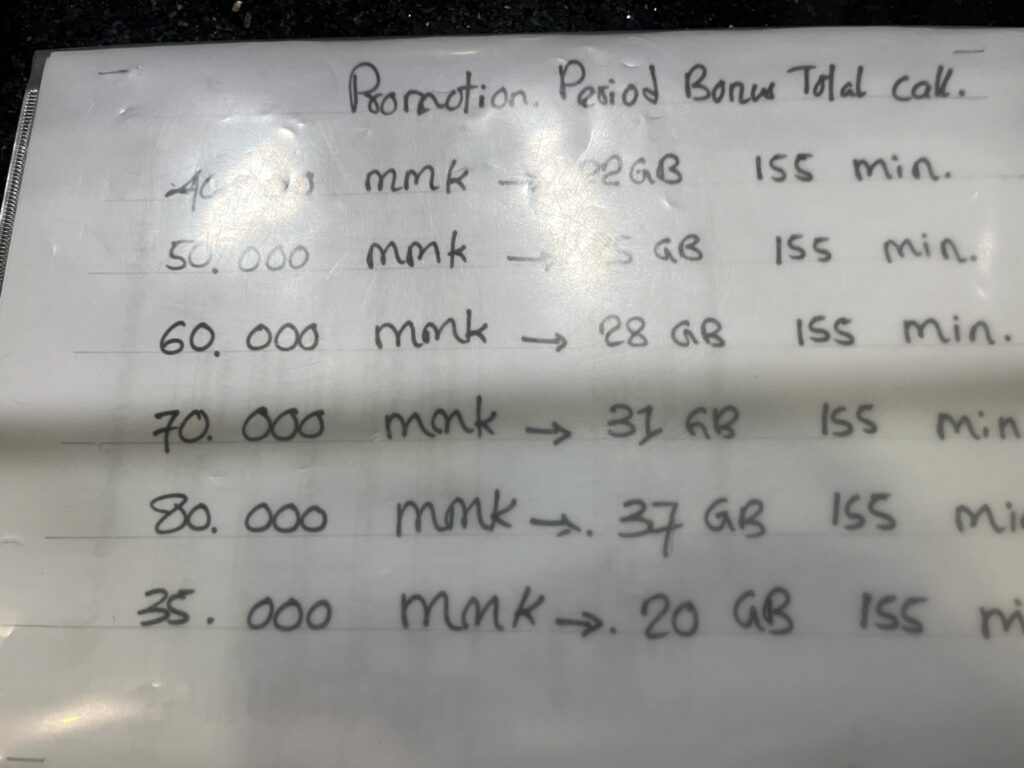 Promotion. Period Bonus Total call.
mmk → GB 155 min.
50.000 mmk → GB 155 min.
60.000 mmk → 28 GB 155 min.
70.000 mmk → 31 GB 155 min
80.000 mmk →. 37 GB 155
35.000 mmk →. 20 GB 155